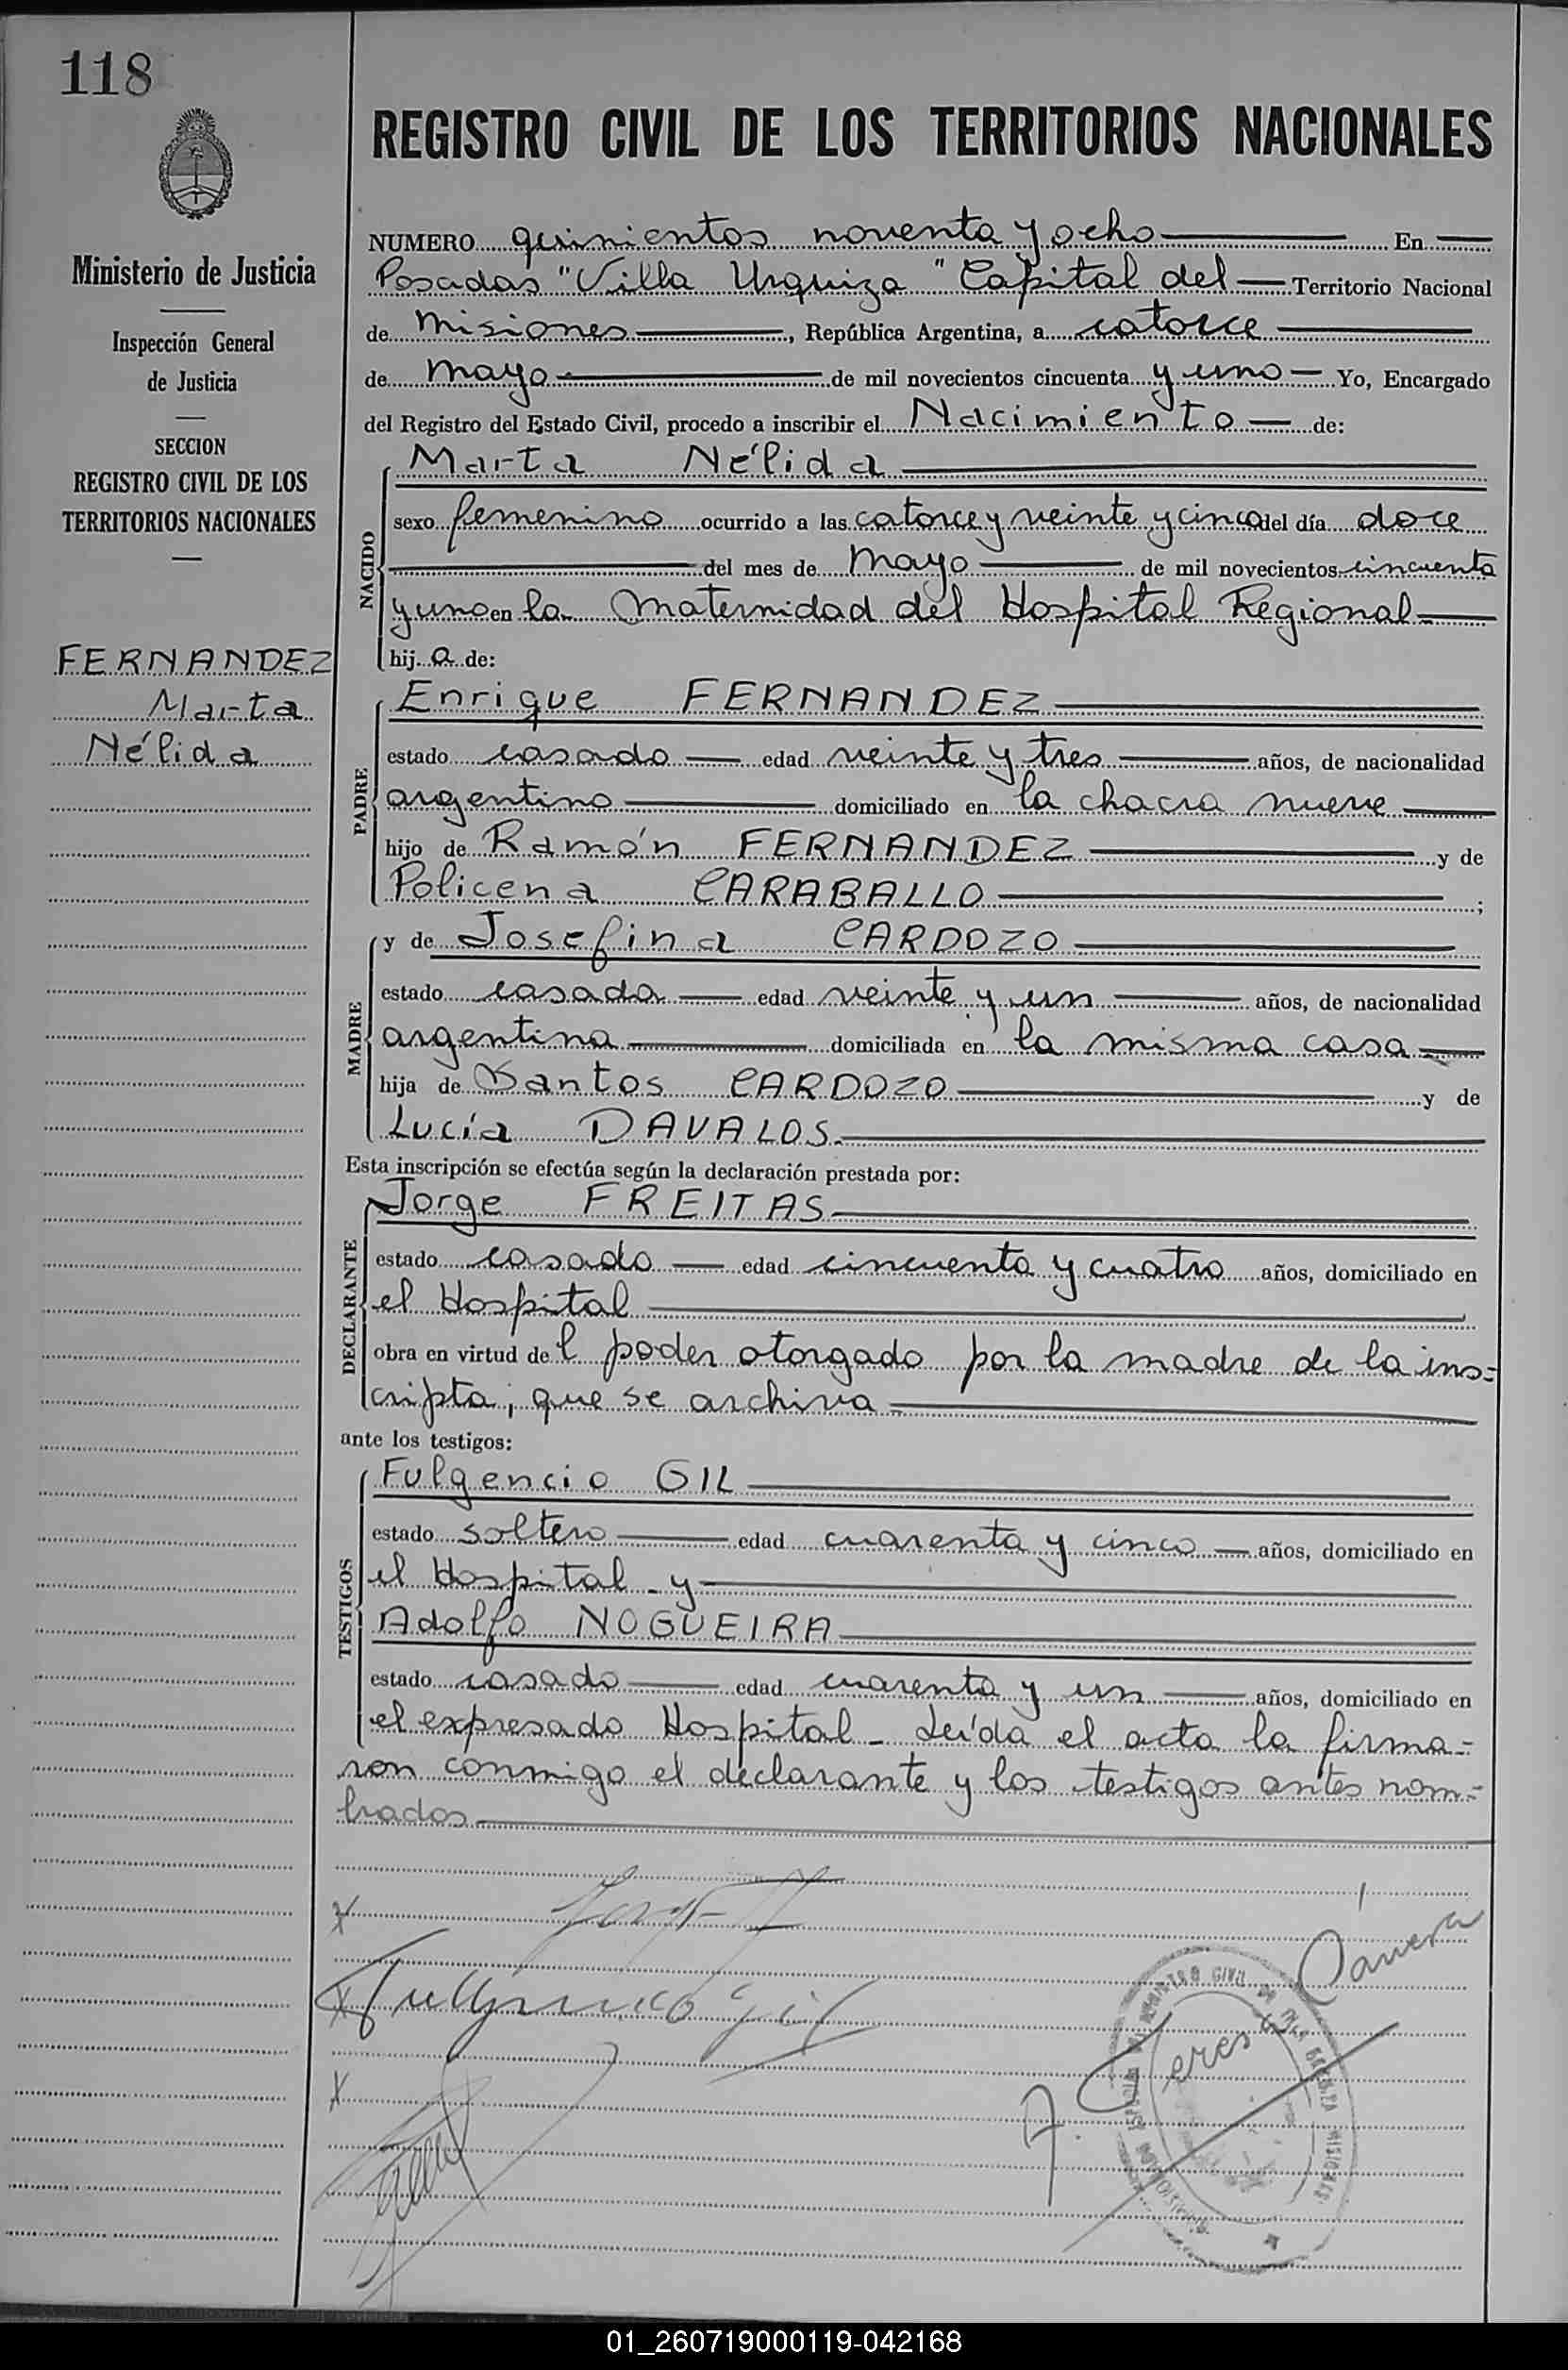 118
REGISTRO CIVIL DE LOS TERRITORIOS NACIONALES
Ministerio de Justicia
Inspección General
de Justicia
SECCION
REGISTRO CIVIL DE LOS
TERRITORIOS NACIONALES
FERNANDEZ
Marta
Nélida
NUMERO quinientos noventa y ocho En
Posadas "Villa Urquiza" Capital del Territorio Nacional
de Misiones, República Argentina, a catorce
de mayo de mil novecientos cincuenta y uno Yo, Encargado
del Registro del Estado Civil, procedo a inscribir el Nacimiento de:
NACIDO
Marta Nélida
sexo femenino ocurrido a las catorce y veinte y cinco del día doce
del mes de Mayo de mil novecientos cincuenta
y uno en la Maternidad del Hospital Regional
hij a de:
PADRE
Enrique FERNANDEZ
estado casado edad veinte y tres años, de nacionalidad
argentino domiciliado en la chacra nueve
hijo de Ramón FERNANDEZ y de
Policena CARABALLO;
MADRE
y de Josefina CARDOZO
estado casada edad veinte y un años, de nacionalidad
argentina domiciliada en la misma casa
hija de Santos CARDOZO y de
Lucía DAVALOS.
Esta inscripción se efectúa según la declaración prestada por:
DECLARANTE
Jorge FREITAS
estado casado edad cincuenta y cuatro años, domiciliado en
el Hospital
obra en virtud de l poder otorgado por la madre de la ins=
cripta, que se archiva
ante los testigos:
TESTIGOS
Fulgencio GIL
estado soltero edad cuarenta y cinco años, domiciliado en
el Hospital - y
Adolfo NOGUEIRA
estado casado edad cuarenta y un años, domiciliado en
el expresado Hospital - Leída el acta la firma=
ron conmigo el declarante y los testigos antes nom=
brados
x
x Fulgencio Gil
x
REGISTRO CIVIL
MISIONES
01_260719000119-042168